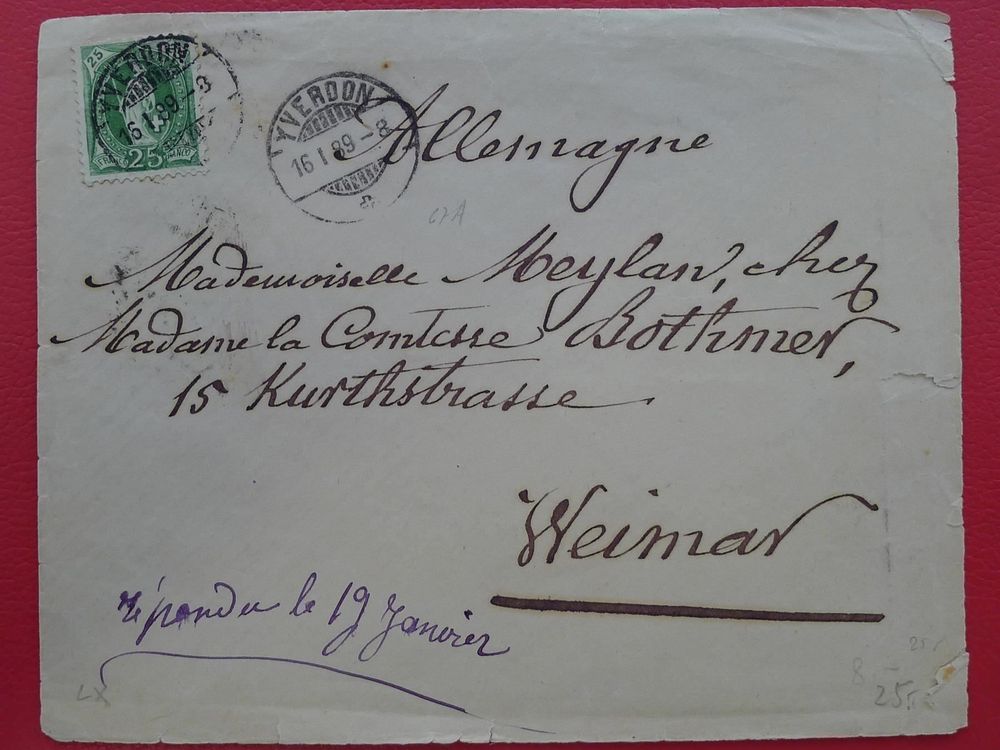 25
YVERDON
16 I 89-8
FRANCO 25 FRANCO
YVERDON
16 I 89-8
Allemagne
67A
Mademoiselle Meylan, chez
Madame la Comtesse Bothmer,
15 Kurthstrasse
Weimar
répondu le 19 Janvier
LX
8 -
25